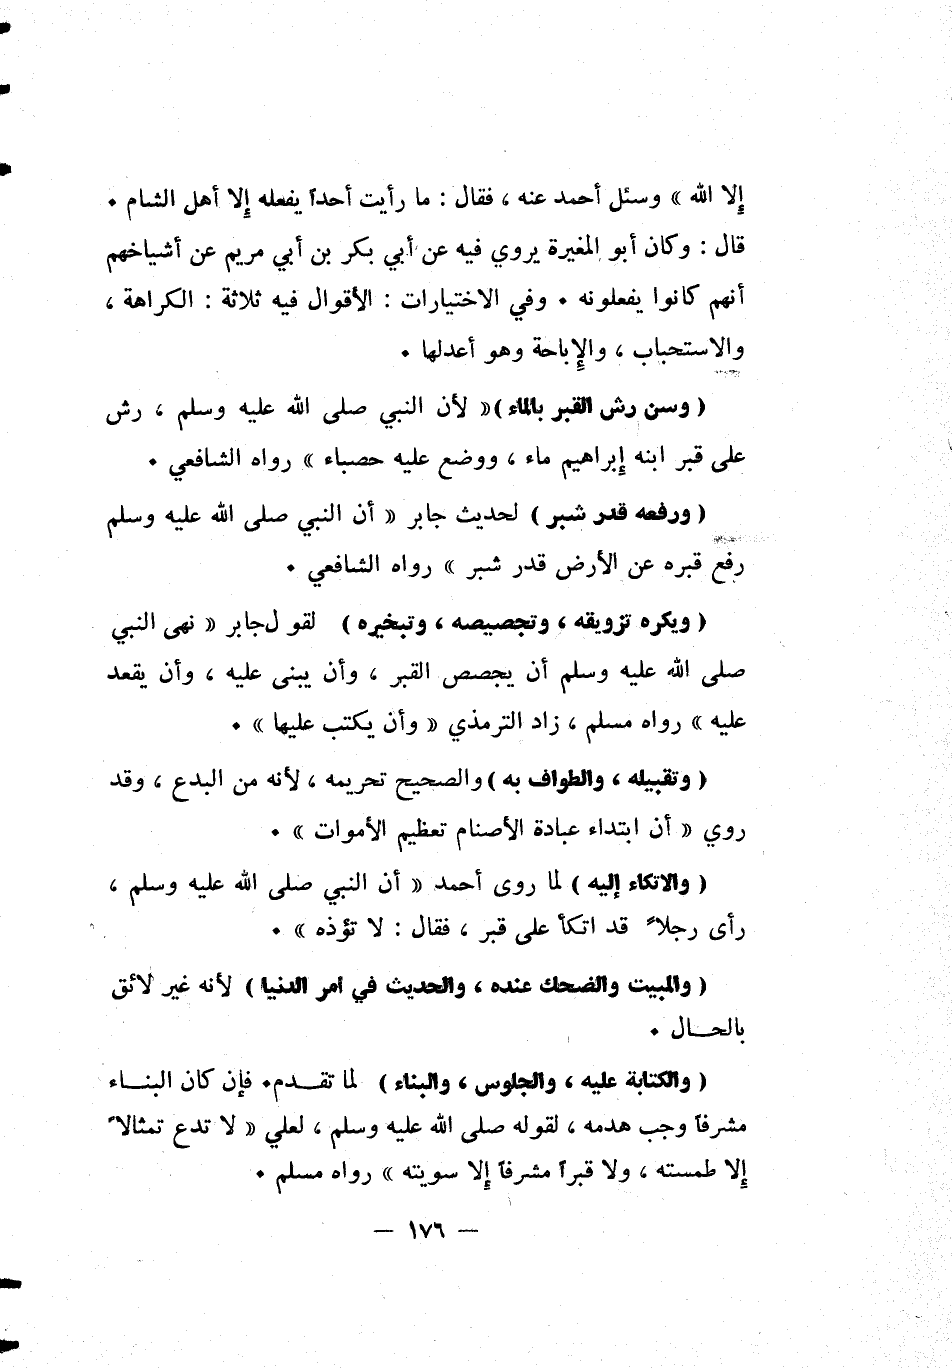 إلا الله » وسئل أحمد عنه ، فقال : ما رأيت أحداً يفعله إلا أهل الشام .
قال : وكان أبو المغيرة يروي فيه عن أبي بكر بن أبي مريم عن أشياخهم
أنهم كانوا يفعلونه . وفي الاختيارات : الأقوال فيه ثلاثة : الكراهة ،
والاستحباب ، والإباحة وهو أعدلها .
( وسن رش القبر بالماء )« لأن النبي صلى الله عليه وسلم ، رش
على قبر ابنه إبراهيم ماء ، ووضع عليه حصباء » رواه الشافعي .
( ورفعه قدر شبر ) لحديث جابر « أن النبي صلى الله عليه وسلم
رفع قبره عن الأرض قدر شبر » رواه الشافعي .
( ويكره تزويقه ، وتجصيصه ، وتبخيره ) لقو لجابر « نهى النبي
صلى الله عليه وسلم أن يجصص القبر ، وأن يبنى عليه ، وأن يقعد
عليه » رواه مسلم ، زاد الترمذي « وأن يكتب عليها » .
( وتقبيله ، والطواف به ) والصحيح تحريمه ، لأنه من البدع ، وقد
روي « أن ابتداء عبادة الأصنام تعظيم الأموات » .
( والاتكاء إليه ) لما روى أحمد « أن النبي صلى الله عليه وسلم ،
رأى رجلاً قد اتكأ على قبر ، فقال : لا تؤذه » .
( والمبيت والضحك عنده ، والحديث في امر الدنيا ) لأنه غير لائق
بالحـــال .
( والكتابة عليه ، والجلوس ، والبناء ) لما تقـــدم. فإن كان البنـــاء
مشرفاً وجب هدمه ، لقوله صلى الله عليه وسلم ، لعلي « لا تدع تمثالاً
إلا طمسته ، ولا قبراً مشرفاً إلا سويته » رواه مسلم .
— ١٧٦ —